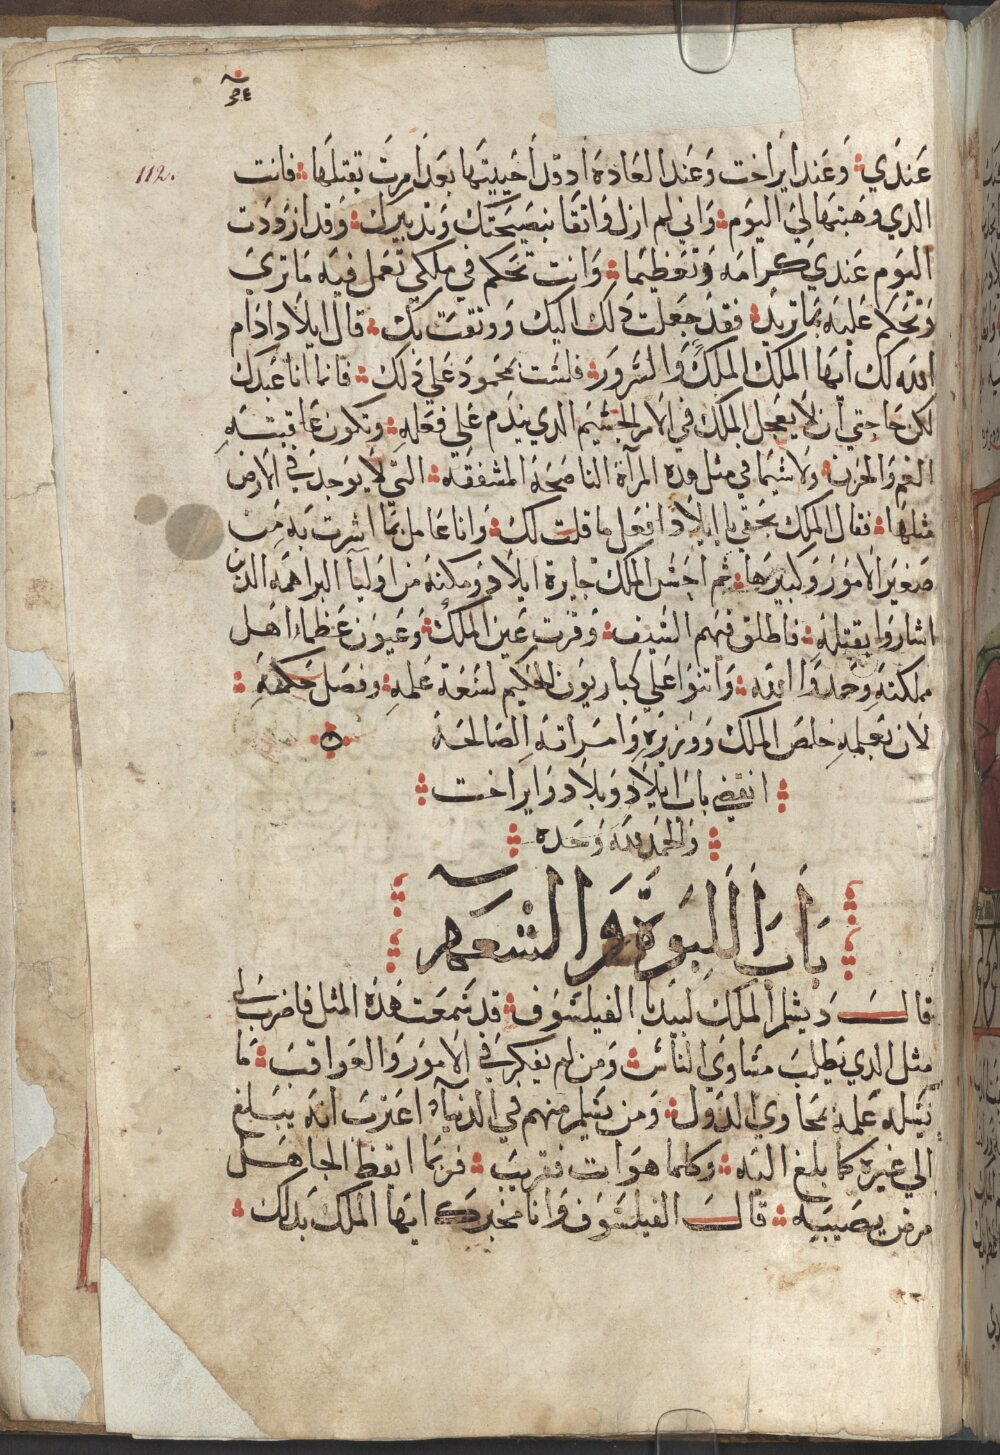 112.
عندي وعند ايراخت وعند العادة اد قد احييتها بعد امرت بقتلها فانت
الدي وهبتها لي اليوم واني لم ازل واتقا بنصيحتك وتدبيرك وقد ازددت
اليوم عندي كرامه وتعظيما وانت تحكم في ملكي تعمل فيه ما تري
وتحكم عليه بما تريد فقد جعلت دلك اليك ووتقت بك قال ايلاد ادام
الله لك ايها الملك الملك والسرور فلست بمحمود علي دلك فانما انا عبدك
لكن حاجتي ان لا يعجل الملك في الامر الجسيم الدي يندم علي فعله وتكون عاقبته
الغم والحزن ولا سيما في مثل هده المرآة الناصحة المشفقه التي لا يوجد في الارض
مثلها فقال الملك بحقي يا ايلاد افعل ما قلت لك وانا عامل بما اشرت به من
صغير الامور وكبيرها ثم احسن الملك جايزة ايلاد ومكنه من اوليا البراهمه الدين
اشاروا بقتله فاطلق فيهم السيف وقرت عين الملك وعيون عظماء اهل
مملكته وحمدوا الله واتنوا علي كباريون الحكيم لسعة علمه وفضل حكمته
لان بعلمه خلص الملك ووزيره وامراته الصالحة
انقضي باب ايلاد وبلاد وايراخت
والحمد لله وحده
باب اللبوة والشعهر
قال ديشلم الملك لبيدبا الفيلسوف قد سمعت هده المثل فاضرب لي
مثل الدي يطلب مساوي الناس ومن لم يفكر في الامور والعواقب ما
يتله علمه بمجاوي الدول ومن يسلم منهم في الدنيا اعترب انه يبلغ
الي غيره كما بلغ اليه وكلما هو ات فقريب فربما اتعظ الجاهل
مرض يصيبه قال الفيلسوف وانا مخبرك ايها الملك بدلك